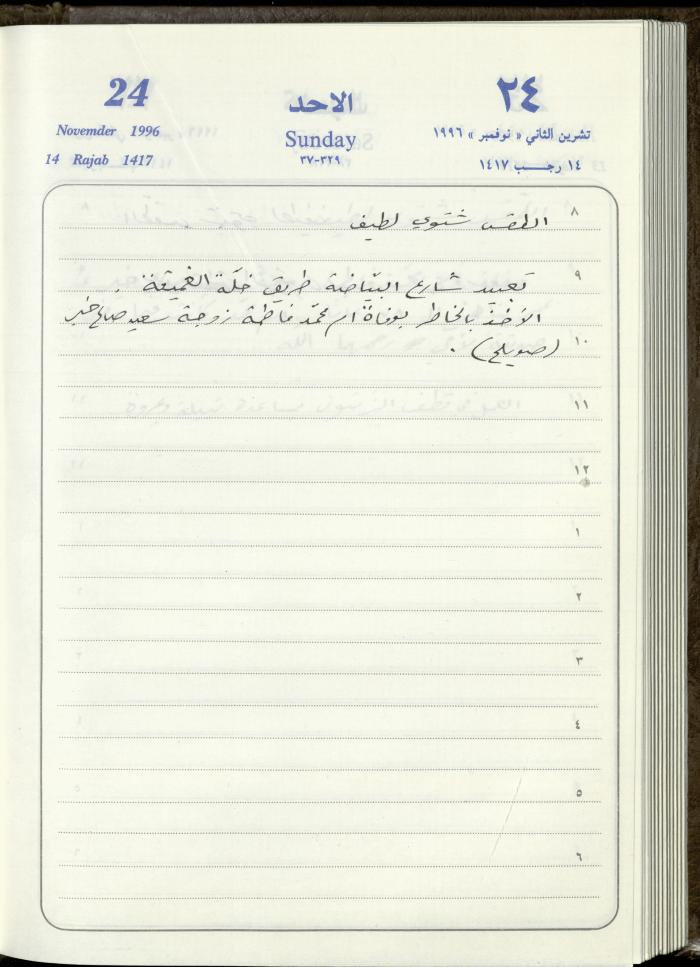 24 الاحد ٢٤
Novemder 1996 Sunday تشرين الثاني « نوفمبر » ١٩٩٦
14 Rajab 1417 ٣٢٩-٣٧ ١٤ رجب ١٤١٧
٨ الطقس شتوي لطيف
٩ تعبيد شارع البيّاضة طريق خلّة الغميقة.
الأخذ بالخاطر بوفاة ام محمّد فاطمة زوجة سعيد صالح
١٠ (صويلح).
١١
١٢
١
٢
٣
٤
٥
٦